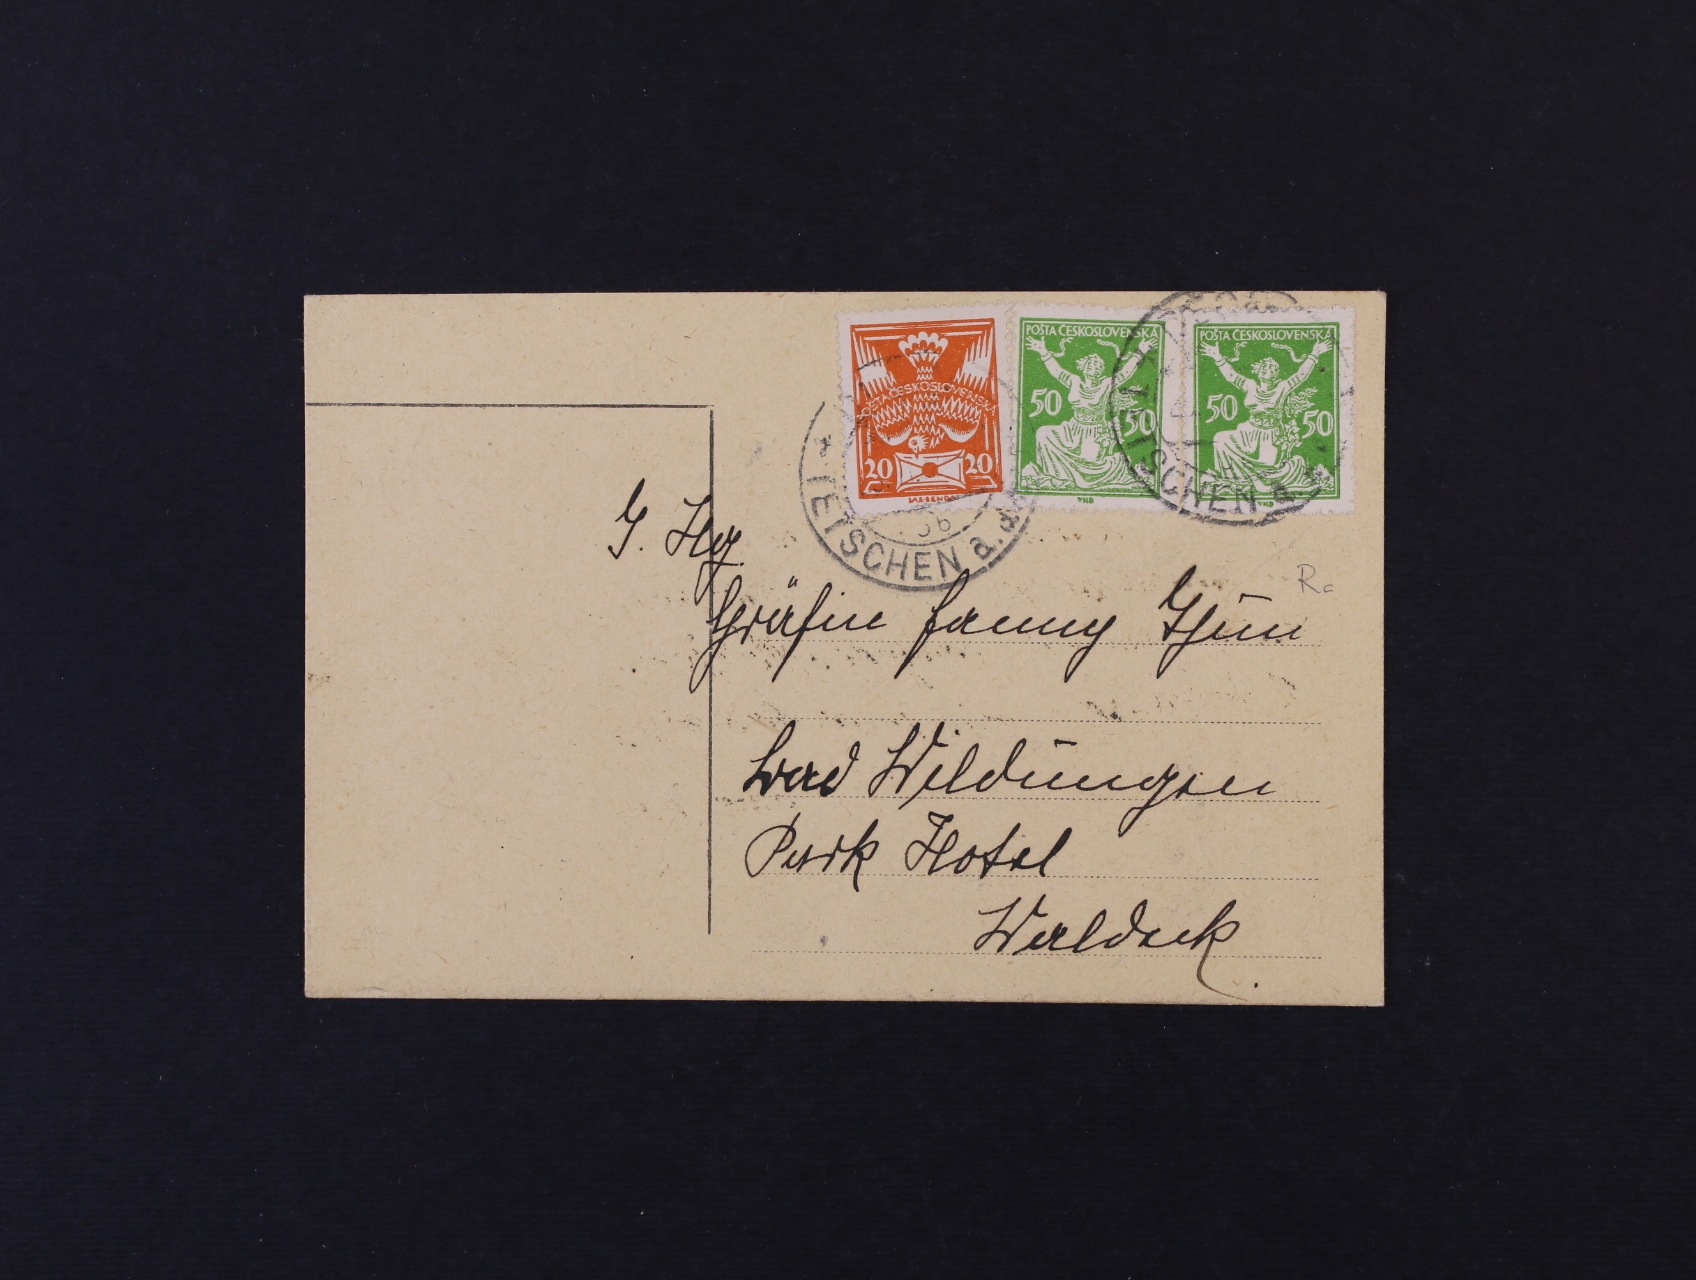 POŠTA ČESKOSLOVENSKÁ
20 20
POŠTA ČESKOSLOVENSKÁ
50 50
VHB
POŠTA ČESKOSLOVENSKÁ
50 50
VHB
TETSCHEN a.
TETSCHEN a.
Gräfin Fanny Thun
Bad Wildungen
Park Hotel
Waldeck.